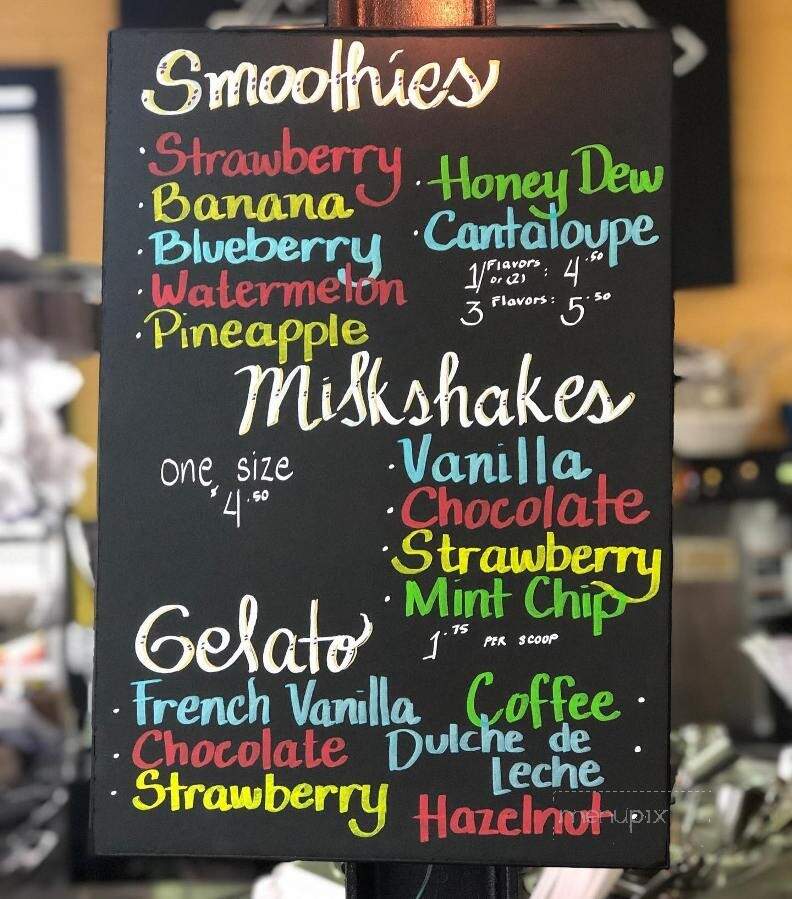 Smoothies
· Strawberry
· Banana
· Blueberry
· Watermelon
· Pineapple
· Honey Dew
· Cantaloupe
1/Flavors or (2) : 4.50
3 Flavors: 5.50
Milkshakes
one size
$4.50
· Vanilla
· Chocolate
· Strawberry
· Mint Chip
Gelato
1.75 PER SCOOP
· French Vanilla
· Chocolate
· Strawberry
Coffee ·
Dulche de ·
Leche
Hazelnut ·
menupix